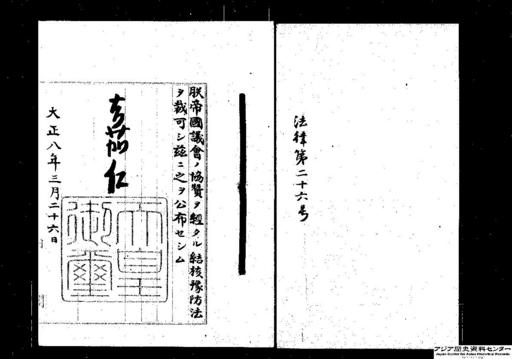 法律第二十六号
朕帝國議會ノ協賛ヲ經タル結核豫防法
ヲ裁可シ茲ニ之ヲ公布セシム
嘉仁
天皇
御璽
大正八年三月二十六日
アジア歴史資料センター
Japan Center for Asian Historical Records